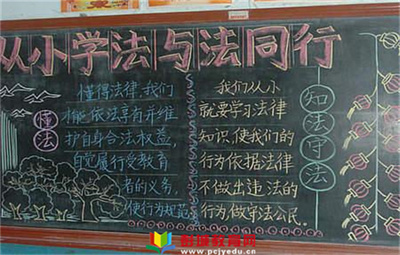 从小学法与法同行
懂法
懂得法律,我们
能依法享有并维
护自身合法权益,
自觉履行受教育
者的义务,
使行为规范
我们从小
就要学习法律
知识,使我们的
行为依据法律
不做出违法的
行为,做守法公民。
知法守法
www.pcjyedu.cn